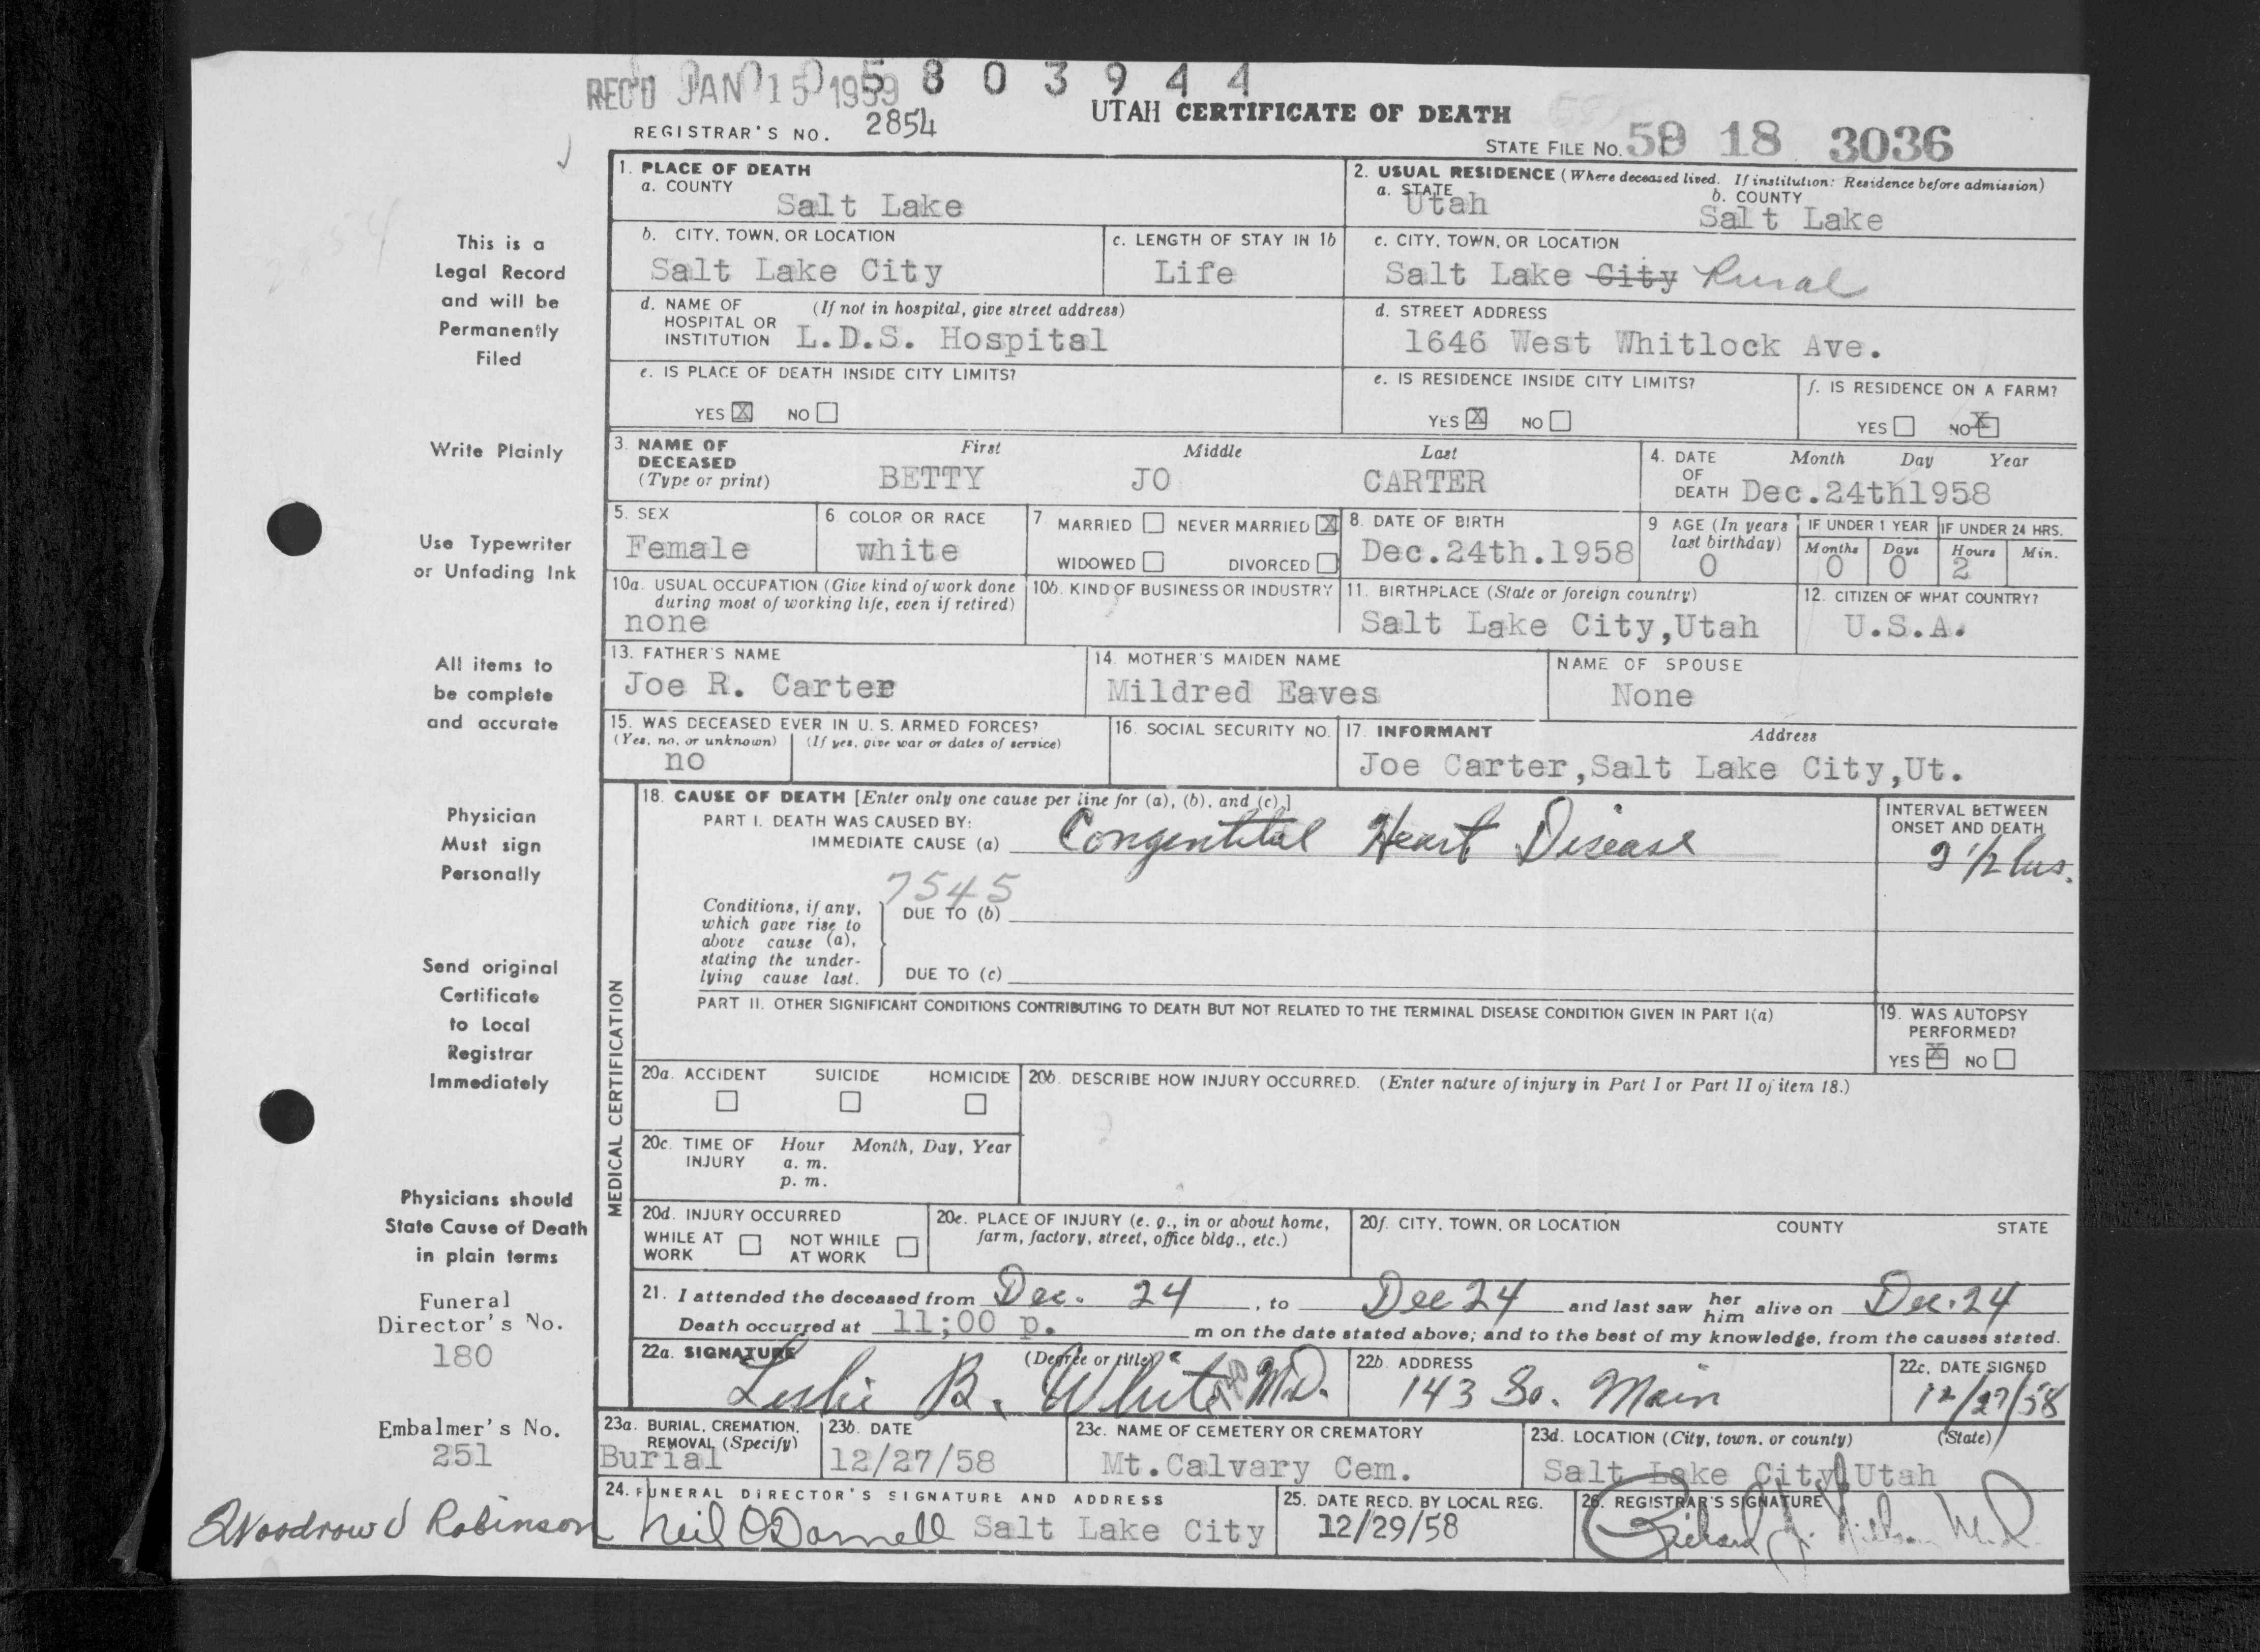 REC'D JAN 15 1959
5803944
REGISTRAR'S NO. 2854
UTAH CERTIFICATE OF DEATH
STATE FILE NO. 58 18 3036
This is a
Legal Record
and will be
Permanently
Filed
Write Plainly
Use Typewriter
or Unfading Ink
All items to
be complete
and accurate
Physician
Must sign
Personally
Send original
Certificate
to Local
Registrar
Immediately
Physicians should
State Cause of Death
in plain terms
Funeral
Director's No.
180
Embalmer's No.
251
Woodrow J Robinson
1. PLACE OF DEATH
a. COUNTY
Salt Lake
2. USUAL RESIDENCE (Where deceased lived. If institution: Residence before admission)
a. STATE
Utah
b. COUNTY
Salt Lake
b. CITY, TOWN, OR LOCATION
Salt Lake City
c. LENGTH OF STAY IN 1b
Life
c. CITY, TOWN, OR LOCATION
Salt Lake City Rural
d. NAME OF (If not in hospital, give street address)
HOSPITAL OR
INSTITUTION L.D.S. Hospital
d. STREET ADDRESS
1646 West Whitlock Ave.
e. IS PLACE OF DEATH INSIDE CITY LIMITS?
YES X NO
e. IS RESIDENCE INSIDE CITY LIMITS?
YES X NO
f. IS RESIDENCE ON A FARM?
YES NO X
3. NAME OF
DECEASED
(Type or print)
First Middle Last
BETTY JO CARTER
4. DATE Month Day Year
OF
DEATH Dec.24th1958
5. SEX
Female
6 COLOR OR RACE
white
7. MARRIED NEVER MARRIED X
WIDOWED DIVORCED
8. DATE OF BIRTH
Dec.24th.1958
9 AGE (In years
last birthday)
0
IF UNDER 1 YEAR IF UNDER 24 HRS.
Months Days Hours Min.
0 0 2
10a. USUAL OCCUPATION (Give kind of work done
during most of working life, even if retired)
none
10b. KIND OF BUSINESS OR INDUSTRY
11. BIRTHPLACE (State or foreign country)
Salt Lake City,Utah
12. CITIZEN OF WHAT COUNTRY?
U.S.A.
13. FATHER'S NAME
Joe R. Carter
14. MOTHER'S MAIDEN NAME
Mildred Eaves
NAME OF SPOUSE
None
15. WAS DECEASED EVER IN U. S. ARMED FORCES?
(Yes, no, or unknown) (If yes, give war or dates of service)
no
16. SOCIAL SECURITY NO.
17. INFORMANT Address
Joe Carter,Salt Lake City,Ut.
MEDICAL CERTIFICATION
18. CAUSE OF DEATH [Enter only one cause per line for (a), (b), and (c).]
PART I. DEATH WAS CAUSED BY:
IMMEDIATE CAUSE (a) Congentital Heart Disease
INTERVAL BETWEEN
ONSET AND DEATH
2 1/2 hrs.
7545
Conditions, if any,
which gave rise to
above cause (a),
stating the under-
lying cause last.
DUE TO (b)
DUE TO (c)
PART II. OTHER SIGNIFICANT CONDITIONS CONTRIBUTING TO DEATH BUT NOT RELATED TO THE TERMINAL DISEASE CONDITION GIVEN IN PART I(a)
19. WAS AUTOPSY
PERFORMED?
YES X NO
20a. ACCIDENT SUICIDE HOMICIDE
20b. DESCRIBE HOW INJURY OCCURRED. (Enter nature of injury in Part I or Part II of item 18.)
20c. TIME OF Hour Month, Day, Year
INJURY a. m.
p. m.
20d. INJURY OCCURRED
WHILE AT NOT WHILE
WORK AT WORK
20e. PLACE OF INJURY (e. g., in or about home,
farm, factory, street, office bldg., etc.)
20f. CITY, TOWN, OR LOCATION COUNTY STATE
21. I attended the deceased from Dec. 24, to Dec 24 and last saw her him alive on Dec. 24
Death occurred at 11;00 p. m on the date stated above; and to the best of my knowledge, from the causes stated.
22a. SIGNATURE (Degree or title)
Leslie B. White M.D.
22b. ADDRESS
143 So. Main
22c. DATE SIGNED
12/27/58
23a. BURIAL, CREMATION,
REMOVAL (Specify)
Burial
23b. DATE
12/27/58
23c. NAME OF CEMETERY OR CREMATORY
Mt.Calvary Cem.
23d. LOCATION (City, town, or county) (State)
Salt Lake City Utah
24. FUNERAL DIRECTOR'S SIGNATURE AND ADDRESS
Neil O'Donnell Salt Lake City
25. DATE RECD. BY LOCAL REG.
12/29/58
26. REGISTRAR'S SIGNATURE
Richard